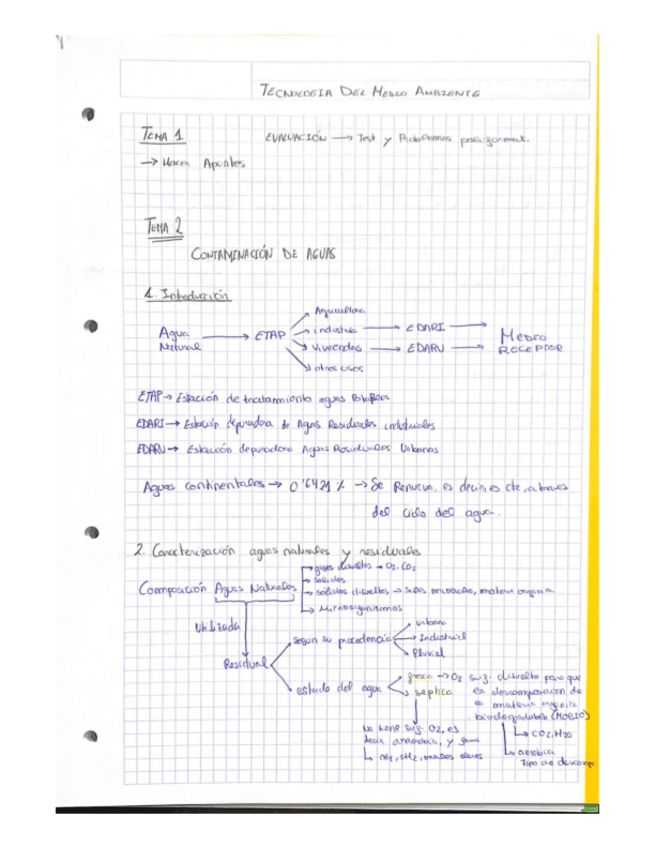 TECNOLOGIA DEL MEDIO AMBIENTE
TEMA 1
EVALUACIÓN → Test y Problemas
→ Hacer Apuntes
TEMA 2
CONTAMINACIÓN DE AGUAS
1. Introducción
Agua Natural → ETAP
Agricultura
industria → EDARI → MEDIO RECEPTOR
viviendas → EDARU →
otros usos
ETAP → Estación de tratamiento aguas Potables
EDARI → Estación depuradora de Aguas Residuales industriales
EDARU → Estación depuradora Aguas Residuales Urbanas
Aguas continentales → 0'6421 % → Se Renueva, es decir, es cte, a traves
del ciclo del agua.
2. Caracterización aguas naturales y residuales
Composición Aguas Naturales
→ gases disueltos → O2, CO2
→ Solidos
→ solidos disueltos → sales minerales, materia organica
→ Microorganismos
Utilizada
Residual
segun su procedencia
→ urbana
→ Industrial
→ Pluvial
estado del agua
fresca → O2 suf. disuelto para que
la descomposicion de
la materia organica
biodegradable (MOBIO)
→ CO2, H2O
→ aerobica
Tipo de descomp
septica
No tiene suf. O2, es
decir anaerobia, y
CH4, SH2, malos olores